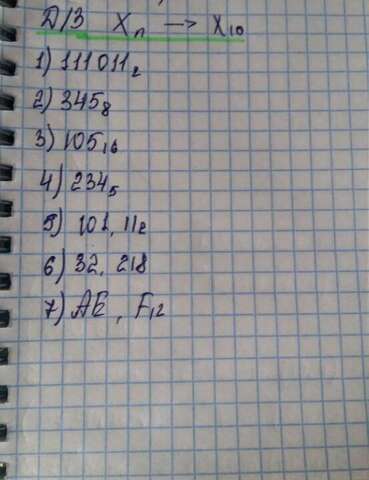 Д/З Xₙ → X₁₀
1) 111011₂
2) 345₈
3) 105₁₆
4) 234₅
5) 101, 11₂
6) 32, 21₈
7) AE, F₁₂